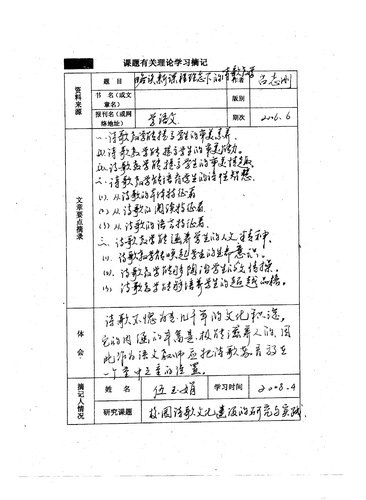 课题有关理论学习摘记
资料来源
题目
略谈新课程理念下的诗歌教学
作者
吕志刚
书名（或文章名）
版别
报刊名（或网络地址）
学语文
期次
2006.6
文章要点摘录
一、诗歌教学能提高学生的审美素养
1、诗歌教学能提高学生的审美能力。
2、诗歌教学能提高学生的审美情趣
二、诗歌教学能培育学生的诗性智慧。
(1)、从诗歌的文体特征看
(2)、从诗歌的阅读特征看
(3)、从诗歌的语言特征看。
三、诗歌教学能涵养学生的人文精神。
(1)、诗歌教学能唤起学生的生命意识。
(2)、诗歌教学能够陶冶学生的情操。
(3)、诗歌教学能够培养学生的品格。
体会
诗歌不愧为是几千年的文化积淀，
它的内涵的丰富是能滋养人的，因
此作为语文教师应把诗歌教育放在
一个重中之重的位置。
摘记人情况
姓名
伍玉娟
学习时间
2008.4
研究课题
校园诗歌文化建设的研究与实践